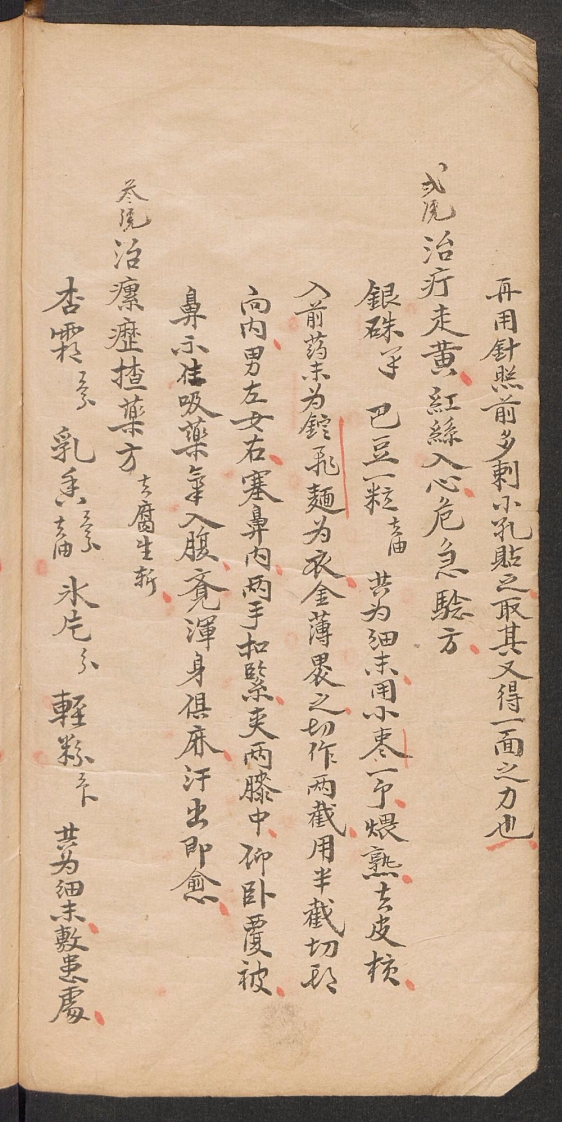 再用針照前多刺小孔貼之取其又得一面之力也
弍號 治疔走黃紅絲入心危急騐方
銀硃 巴豆一粒 去油 共为細末用小枣一个煨熟去皮核
入前药末为錠飛麵为衣金薄裹之切作两截用半截切
向内男左女右塞鼻内两手扣緊夾两膝中仰卧覆被
鼻不住吸藥氣入腹竟渾身俱麻汗出即愈
叁號 治瘰癧揸藥方 去腐生新
杏霜 乳香 去油 氷片 輕粉 共为細末敷患處